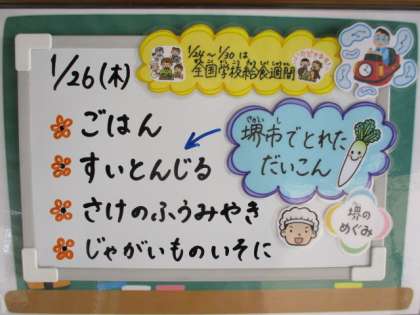 1/26(木)
1/24～1/30は
全国学校給食週間
ごはん
すいとんじる
さけのふうみやき
じゃがいものいそに
堺市でとれた
だいこん
堺の
めぐみ